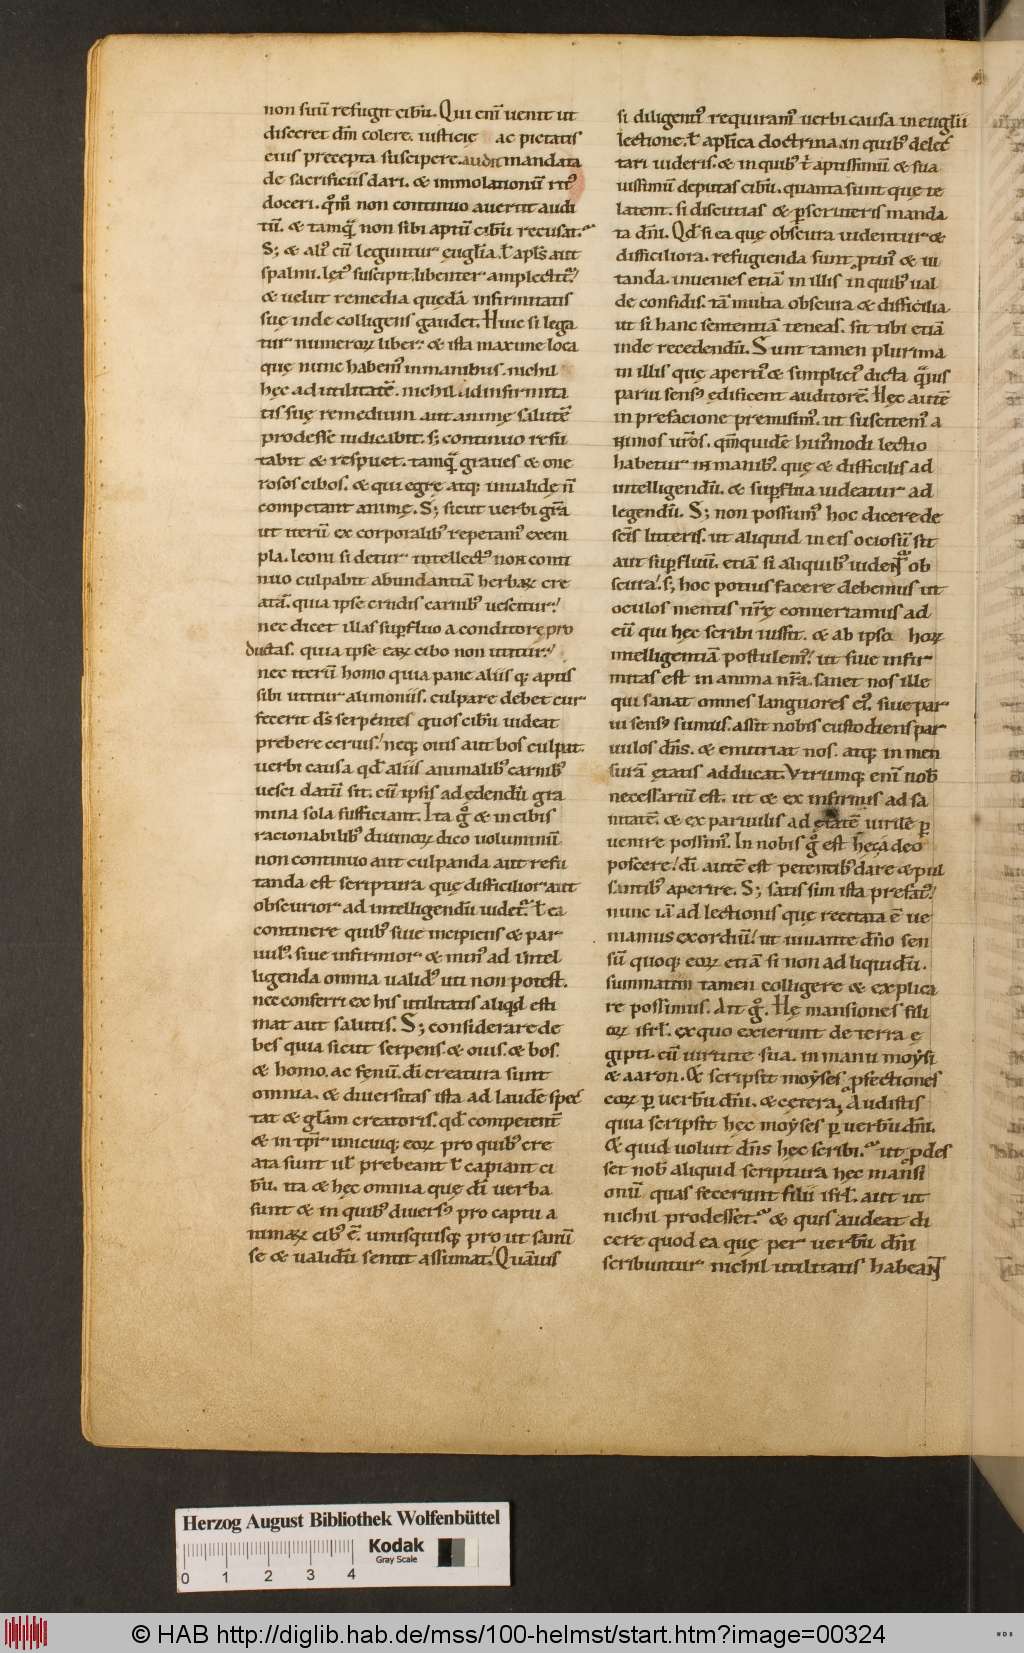 non suū refugit cibū. Qui enī uenit ut
disceret dm̄ colere. iusticię ac pietatis
eius precepta suscipere. audit mandata
de sacrificiis dari. & immolationū rit᷒
doceri. qm̊o non continuo auertit audi
tū. & tamquā non sibi aptū cibū recusat.
S; & ali᷒ cū leguntur ęuglia. ł apl̄s aut
spalmi. lęt᷒ suscipit. libenter amplectit᷒.
& uelut remedia quędā infirmitatis
suę inde colligens gaudet. Huic si lega
tur numeroꝝ liber. & ista maxime loca
quę nunc habem᷒ in manibus. nichil
hęc ad utilitatē. nichil ad infirmita
tis suę remedium aut animę salutē
prodesse iudicabit. s; continuo refu
tabit & respuet. tamquā graues & one
rosos cibos. & qui egrę atq; inualidę n̄
competant animę. S; sicut uerbi grā
ut iterū ex corporalib᷒ repetam᷒ exem
pla. leoni si detur intellect᷒ non conti
nuo culpabit abundantiā herbaꝝ cre
atā. quia ipse crudis carnib᷒ uescitur.
nec dicet illas supfluo a conditore pro
ductas. quia ipse eaꝝ cibo non utitur.
nec iterū homo quia pane aliisq; aptis
sibi utitur alimoniis. culpare debet cur
fecerit ds̄ serpentes quos cibū uideat
prebere ceruis. neq; ouis aut bos culpat.
uerbi causa qd̄ aliis animalib᷒ carnib᷒
uesci datū sit. cū ipsis ad edendū gra
mina sola sufficiant. Ita g̊ & in cibis
racionabilib᷒ diuinoꝝ dico uoluminū
non continuo aut culpanda aut refu
tanda est scriptura quę difficilior aut
obscurior ad intelligendū uidet᷒. ł ea
continere quib᷒ siue incipiens & par
uul᷒. siue infirmior & min᷒ ad intel
ligenda omnia ualid᷒ uti non potest.
nec conferri ex his utilitatis aliqd esti
mat aut salutis. S; considerare de
bes quia sicut serpens. & ouis. & bos.
& homo. ac fenū. dī creatura sunt
omnia. & diuersitas ista ad laudē spec
tat & glām creatoris. qd̄ competent̄
& in tp̄r unicuiq; eoꝝ pro quib᷒ cre
ata sunt uł prebeant ł capiant ci
bū. ita & hęc omnia quę dī uerba
sunt & in quib᷒ diuers᷒ pro captu a
nimaꝝ cib᷒ ē. unusquisq; pro ut sanū
se & ualidū sentit assumat. Quāuis
si diligenti᷒ requiram᷒ uerbi causa in euglii
lectione. ł aplica doctrina. in quib᷒ delec
tari uideris. & in quib᷒ t̄ aptissimū & sua
uissimū deputas cibū. quanta sunt quę te
latent. si discutias & pscruteris manda
ta dn̄i. Qd̄ si ea quę obscura uidentur &
difficiliora. refugienda sunt ptin᷒ & ui
tanda. inuenies etiā in illis in quib᷒ ual
de confidis. tā multa obscura & difficilia.
ut si hanc sententiā teneas. sit tibi etiā
inde recedendū. Sunt tamen plurima
in illis quę aperti᷒ & simplici᷒ dicta quāuis
parui sens᷒ ędificent auditorē. Hęc autē
in prefacione premisim᷒. ut suscitem᷒ a
nimos ur̄os. qm̄quidē hui᷒modi lectio
habetur in manib᷒. quę & difficilis ad
intelligendū. & supflua uideatur ad
legendū. S; non possum᷒ hoc dicere de
sc̄is litteris. ut aliquid in eis ociosū sit
aut supfluū. etiā si aliquib᷒ uident᷒ ob
scura. s; hoc potius facere debemus ut
oculos mentis nr̄ę conuertamus ad
eū qui hęc scribi iussit. & ab ipso hoꝝ
intelligentiā postulem᷒. ut siue infir
mitas est in anima nr̄a. sanet nos ille
qui sanat omnes languores ei᷒. siue par
ui sens᷒ sumus. assit nobis custodiens par
uulos dn̄s. & enutriat nos. atq; in men
surā ętatis adducat. Vtrumq; enī nob̄
necessariū est. ut & ex infirmis ad sa
nitatē & ex paruulis ad ętatē uirilē p
uenire possim᷒. In nobis g̊ est hęc a deo
poscere. dī autē est petentib᷒ dare & pul
santib᷒ aperire. S; satis sint ista prefat᷒.
nunc iā ad lectionis quę recitata ē ue
niamus exordiū. ut iuuante dn̄o sen
sū quoq; eoꝝ etiā si non ad liquidū.
summatim tamen colligere & explica
re possimus. Ait g̊. Hę mansiones fili
oꝝ isrł. ex quo exierunt de terra ę
gipti. cū uirtute sua. in manu moẏsi
& aaron. & scripsit moẏses pfectiones
eoꝝ p uerbū dn̄i. & cętera. Audistis
quia scripsit hęc moẏses p uerbū dn̄i.
& quid uoluit dn̄s hęc scribi. ut pdes
set nob̄ aliquid scriptura hęc mansi
onū quas fecerunt filii isrł. aut ut
nichil prodesset. & quis audeat di
cere quod ea quę per uerbū dn̄i
scribuntur nichil utilitatis habeant
Herzog August Bibliothek Wolfenbüttel
Kodak
Gray Scale
0 1 2 3 4
© HAB http://diglib.hab.de/mss/100-helmst/start.htm?image=00324